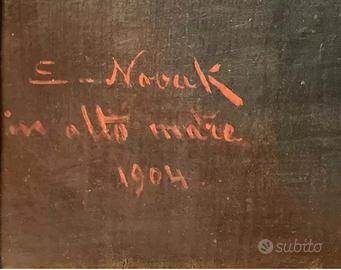 E. Novak
in alto mare
1904
subito